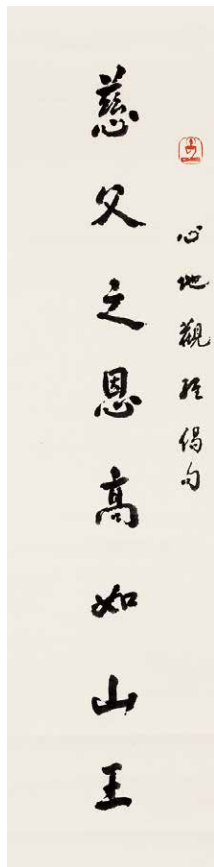 心地觀經偈句
慈父之恩高如山王